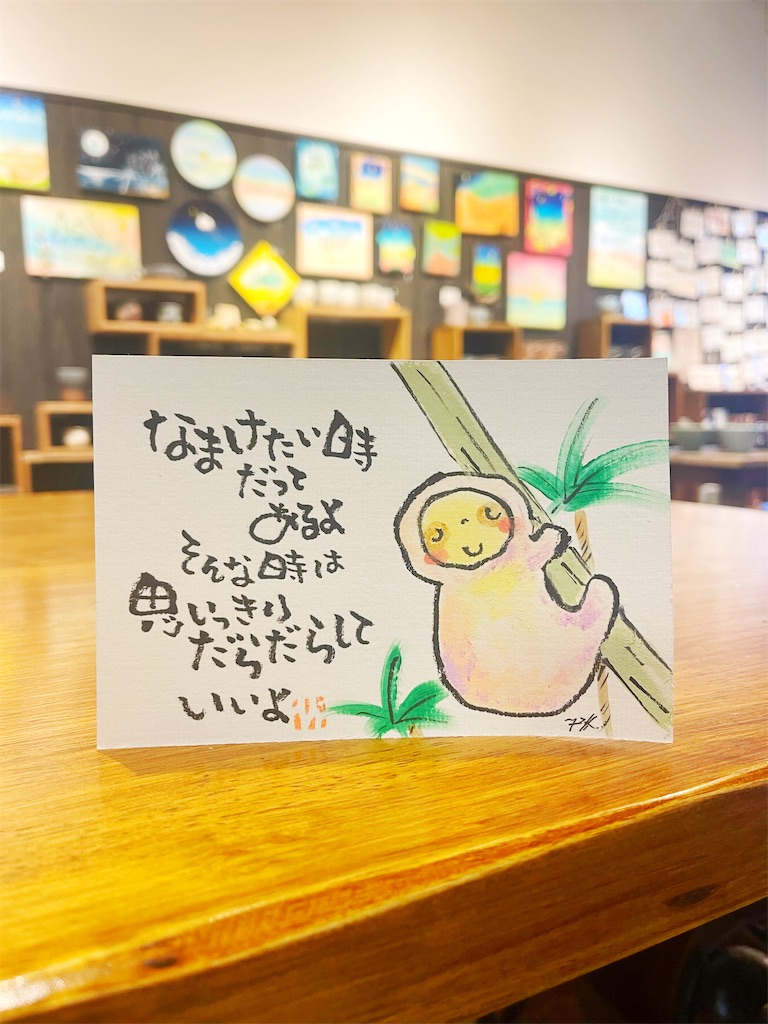 なまけたい時
だって
あるよ
そんな時は
思いっきり
だらだらして
いいよ